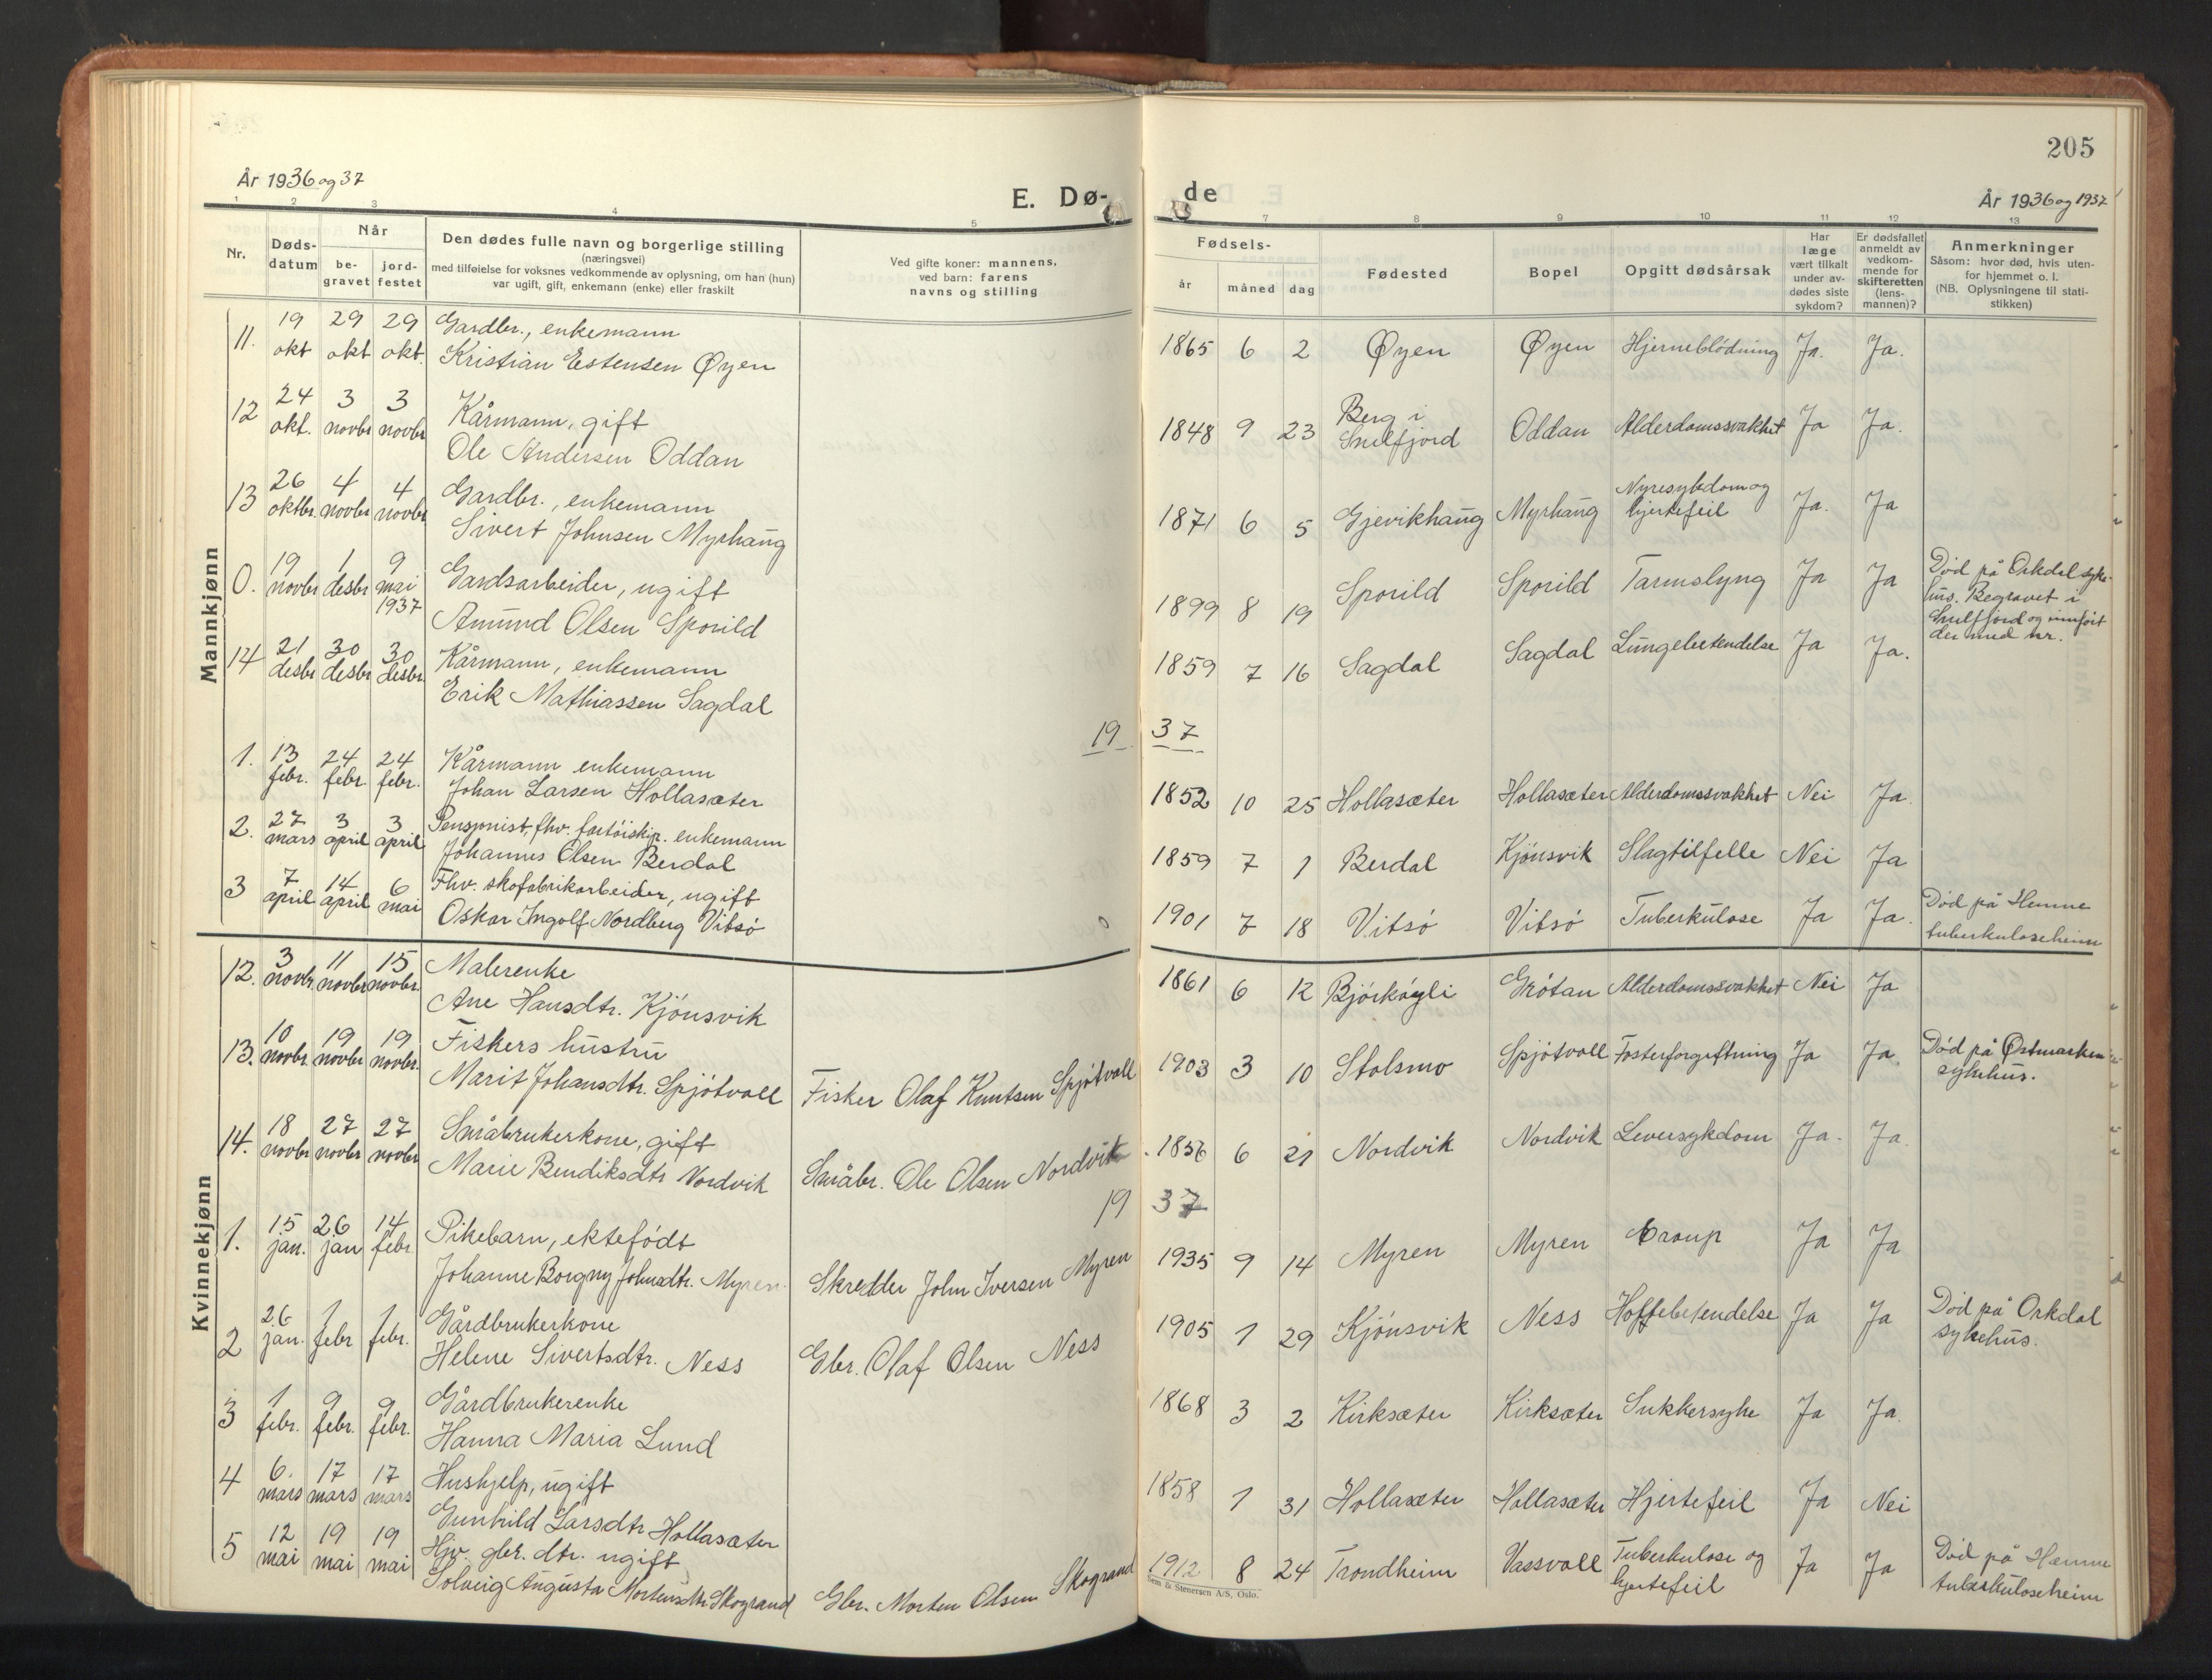 205
År 1936 og 37
E. Dø-
de
År 1936 og 1937
1 2 3 4 5 7 8 9 10 11 12 13
Nr.
Døds-
datum
Når
be-
gravet
jord-
festet
Den dødes fulle navn og borgerlige stilling
(næringsvei)
med tilføielse for voksnes vedkommende av oplysning, om han (hun)
var ugift, gift, enkemann (enke) eller fraskilt
Ved gifte koner: mannens,
ved barn: farens
navns og stilling
Fødsels-
år måned dag
Fødested
Bopel
Opgitt dødsårsak
Har
læge
vært tilkalt
under av-
dødes siste
sykdom?
Er dødsfallet
anmeldt av
vedkom-
mende for
skifteretten
(lens-
mannen)?
Anmerkninger
Såsom: hvor død, hvis uten-
for hjemmet o. l.
(NB. Oplysningene til stati-
stikken)
Mannkjønn
11. 19 okt 29 okt 29 okt. Gardbr., enkemann
Kristian Estensen Øyen 1865 6 2 Øyen Øyen Hjerneblödning Ja. Ja.
12 24 okt. 3 novbr 3 novbr Kårmann, gift
Ole Andersen Oddan 1848 9 23 Berg i Snilfjord Oddan Alderdomssvakhet Ja Ja.
13 26 oktbr. 4 novbr 4 novbr Gardbr., enkemann
Sivert Johnsen Myrhaug 1871 6 5 Gjevikhaug Myrhaug Nyresykdom og hjertefeil Ja. Ja
0. 19 novbr 1 desbr 9 mai 1937 Gardsarbeider, ugift
Amund Olsen Sporild 1899 8 19 Sporild Sporild Tarmslyng Ja Ja
Død på Orkdal syke-
hus. Begravet i
Snilfjord og innført
der med nr.
14 21 desbr 30 desbr 30 desbr Kårmann, enkemann
Erik Mathiassen Sagdal 1859 7 16 Sagdal Sagdal Lungebetendelse Ja Ja.
19 37
1. 13 febr. 24 febr. 24 febr. Kårmann enkemann
Johan Larsen Hollasæter 1852 10 25 Hollasæter Hollasæter Alderdomssvakhet Nei Ja.
2. 27 mars 3 april 3 april Pensjonist, fhv. enkemann
Johannes Olsen Berdal 1859 7 1 Berdal Kjönsvik Slagtilfelle Nei Ja
3 7 april 14 april 6 mai Fhv. skofabrikarbeider, ugift
Oskar Ingolf Nordberg Vitsö 1901 7 18 Vitsö Vitsö Tuberkulose Ja Ja.
Død på Hemne
tuberkuloseheim
Kvinnekjønn
12. 3 novbr. 11 novbr 15 novbr. Malerenke
Ane Hansdtr. Kjönsvik 1861 6 12 Grötan Alderdomssvakhet Nei Ja
13. 10 novbr. 19 novbr 19 novbr. Fiskers hustru
Marit Johansdtr. Spjötvoll Fisker Olaf Knutsen Spjötvoll 1903 3 10 Stolsmo Spjötvoll Fosterforgiftning Ja Ja.
Død på Østmarken
sykehus.
14. 18 novbr 27 novbr 27 novbr Småbrukerkone, gift
Marie Bendiksdtr Nordvik Småbr. Ole Olsen Nordvik 1856 6 21 Nordvik Nordvik Leversykdom Ja. Ja.
19 37
1. 15 jan. 26 jan 14 febr. Pikebarn, ektefödt
Johanne Borgny Johnsdtr. Myren. Skredder John Iversen Myren 1935 9 14 Myren Myren Croup Ja Ja
2 26 jan. 1 febr 1 febr. Gårdbrukerkone
Helene Sivertsdtr. Ness Gbr. Olaf Olsen Ness 1905 1 29 Kjönsvik Ness Hoftebetendelse Ja Ja
Død på Orkdal
sykehus.
3 1 febr. 9 febr. 9 febr. Gårdbrukerenke
Hanna Maria Lund 1868 3 2 Kirksæter Kirksæter Sukkersyke Ja Ja.
4 6. mars 17 mars 17 mars Hushjelp, ugift
Gunhild Larsdtr Hollasæter 1858 1 31 Hollasæter Hollasæter Hjertefeil Ja Nei
5 12 mai 19 mai 19 mai Hjv. gbr. dtr. ugift
Solveig Augusta Mortensdtr Skogrand Gbr. Morten Olsen Skogrand 1912 8 24 Trondheim Vassvoll Tuberkulose og hjertefeil Ja Ja
Død på Hemne
tuberkuloseheim
Sem & Stenersen A/S, Oslo.